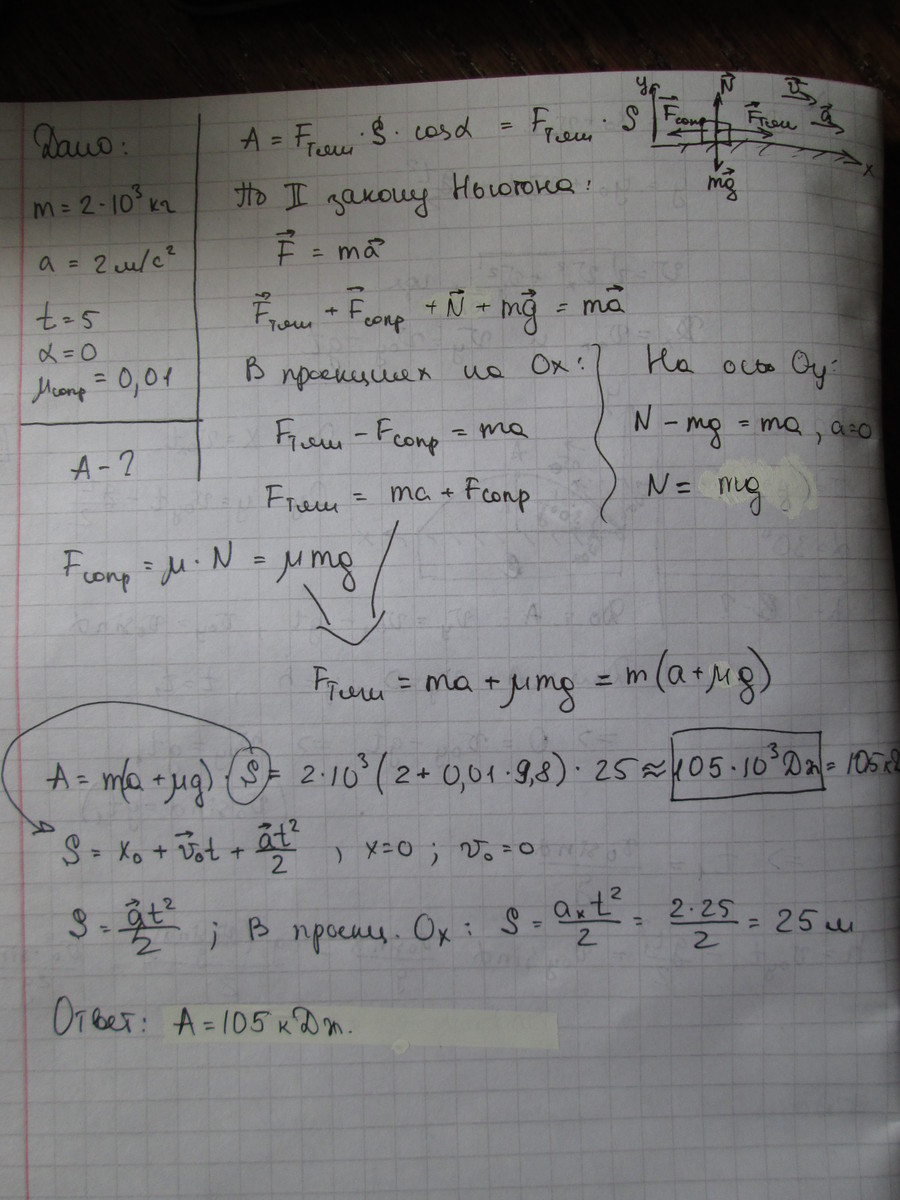 Дано:
m = 2·10³ кг
a = 2 м/с²
t = 5
α = 0
μсопр = 0,01
A - ?
A = Fтяги · S · cosα = Fтяги · S
y N⃗ v⃗ a⃗
F⃗сопр F⃗тяги
mg⃗ x
По II закону Ньютона:
F⃗ = ma⃗
F⃗тяги + F⃗сопр + N⃗ + mg⃗ = ma⃗
В проекциях на Ox:
Fтяги - Fсопр = ma
Fтяги = ma + Fсопр
На ось Oy:
N - mg = ma, a=0
N = mg
Fсопр = μ · N = μmg
Fтяги = ma + μmg = m(a + μg)
A = m(a + μg) · S = 2·10³(2 + 0,01·9,8) · 25 ≈ 105·10³ Дж = 105к
S = x₀ + v⃗₀t + a⃗t²/2 , x=0 ; v₀ = 0
S = a⃗t²/2 ; В проекц. Ox: S = aₓt²/2 = 2·25/2 = 25 м
Ответ: A = 105 кДж.